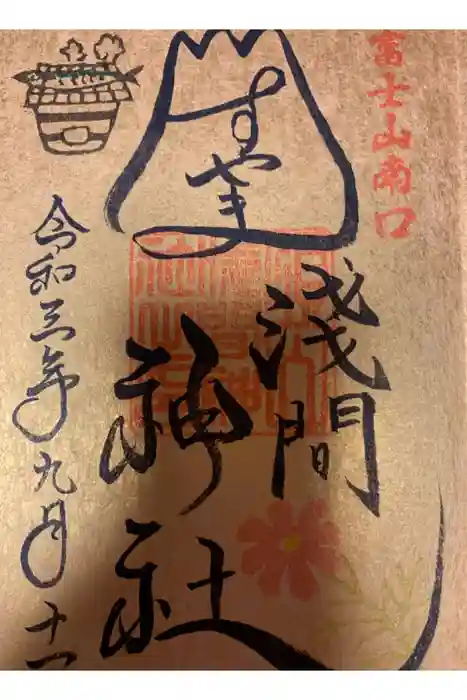 富士山南口
すやま
淺間
神社
令和三年九月十一